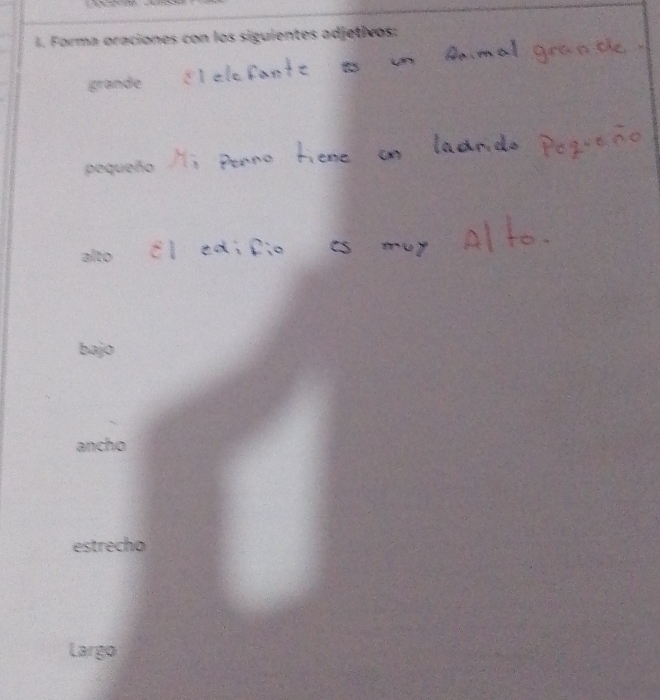 1. Forma oraciones con los siguientes adjetivos:
grande El elefante es un Animal grande.
pequeño Mi perro tiene un ladrido Pequeño
alto El edifio es muy Alto.
bajo
ancho
estrecho
Largo